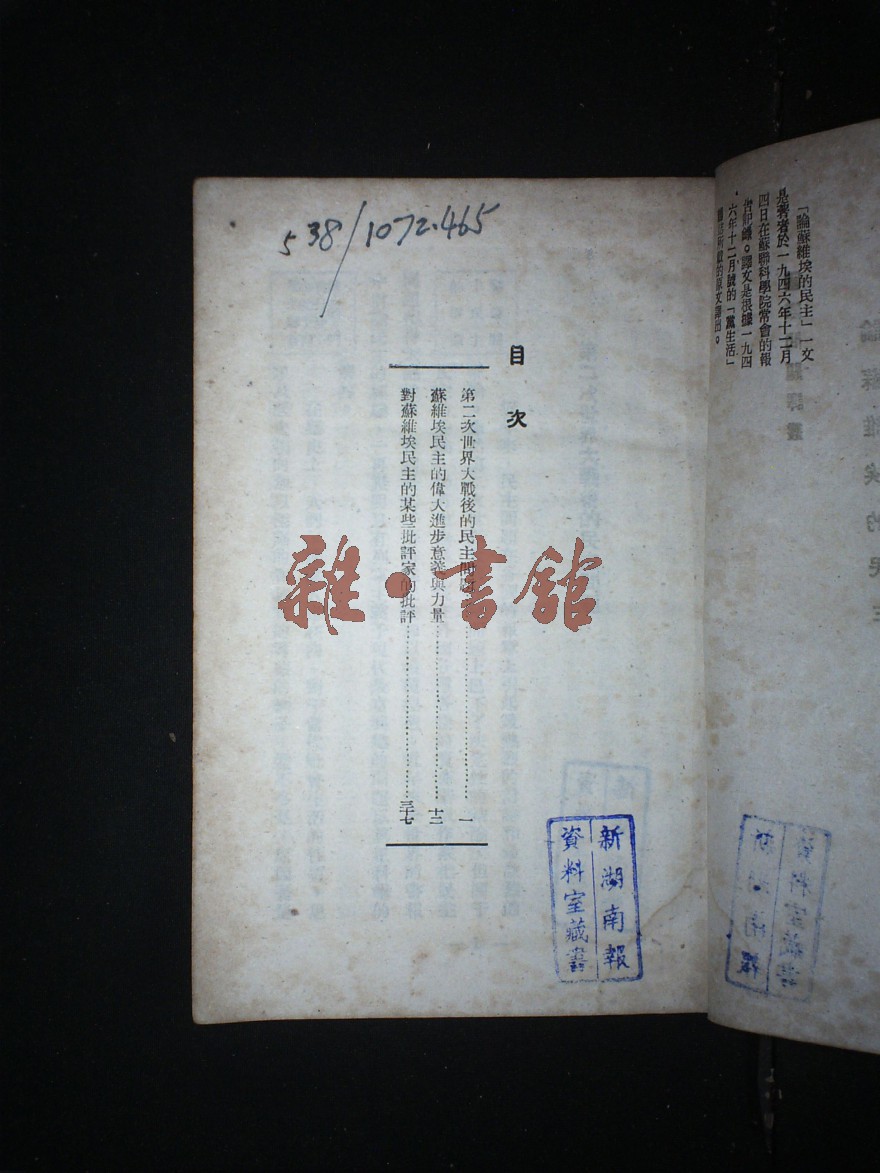 「論蘇維埃的民主」一文
是著者於一九四六年十二月
四日在蘇聯科學院常會的報
告記錄。譯文是根據一九四
六年十二月號的「黨生活」
所載的原文譯出。
538/1072.465
目次
第二次世界大戰後的民主問題 一
蘇維埃民主的偉大進步意義與力量 十二
對蘇維埃民主的某些批評家的批評 三十七
雜·書館
新湖南報
資料室藏書